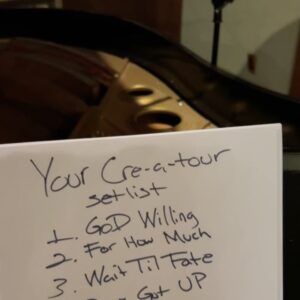 Your Cre-a-tour
setlist
1. GOD Willing
2. For How Much
3. Wait Til Fate
Got UP